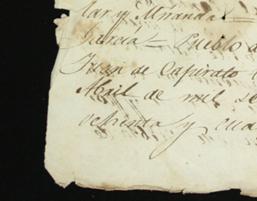 lar y Miranda =
Garcia = Pueblo
Juan de Capirato
Abril de mil
ochenta y cua